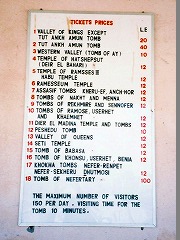 TICKETS PRICES
L.E
1 VALLEY OF KINGS EXCEPT
TUT ANKH AMUN TOMB 20
2 TUT ANKH AMUN TOMB 40
3 WESTERN VALLEY (TOMB OF AY) 10
4 TEMPLE OF HATSHEPSUT
(DEIR EL BAHARI) 12
5 TEMPLE OF RAMSSES III
HABU TEMPLE 12
6 RAMESSEUM TEMPLE 12
7 ASSASIF TOMBS KHERU-EF, ANCH-HOR 12
8 TOMBS OF NAKHT AND MENNA 12
9 TOMBS OF REKHMIRE AND SENNOFER 12
10 TOMBS OF RAMOSE, USERHET
AND KHAEMHET 12
11 DIER EL MADINA TEMPLE AND TOMBS 12
12 PESHEDU TOMB 10
13 VALLEY OF QUEENS 12
14 SETI TEMPLE 12
15 TOMB OF BABASA 12
16 TOMB OF KHONSU, USERHET, BENIA 12
17 KHOKHA TOMBS NEFER-RENPET
NEFER-SEKHERU DHUTMOSI 12
18 TOMB OF NEFERTARY 100
THE MAXIMUM NUMBER OF VISITORS
150 PER DAY - VISITING TIME FOR THE
TOMB 10 MINUTES.